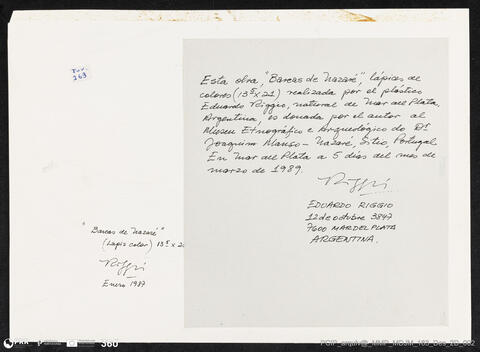 Inv.
263
Esta obra, "Barcas de Nazaré", lápices de
colores (13⁵ x 21) realizada por el plástico
Eduardo Riggio, natural de Mar del Plata,
Argentina, es donada por el autor al
Museu Etnográfico e Arqueológico do Dr.
Joaquim Manso - Nazaré, Sitio, Portugal
En Mar del Plata a 5 días del mes de
marzo de 1989.
Riggio
EDUARDO RIGGIO
12 de octubre 3847
7600 MAR DEL PLATA
ARGENTINA.
"Barcas de Nazaré"
(Lapiz color) 13⁵ x 20
Riggio
Enero 1987
360